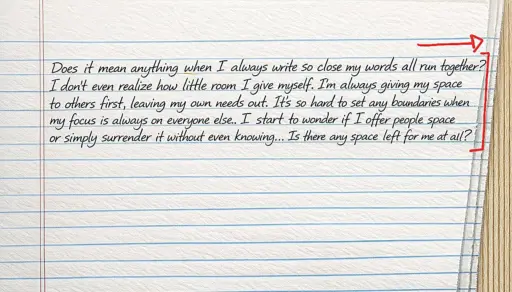 Does it mean anything when I always write so close my words all run together?
I don't even realize how little room I give myself. I'm always giving my space
to others first, leaving my own needs out. It's so hard to set any boundaries when
my focus is always on everyone else.. I start to wonder if I offer people space
or simply surrender it without even knowing... Is there any space left for me at all?